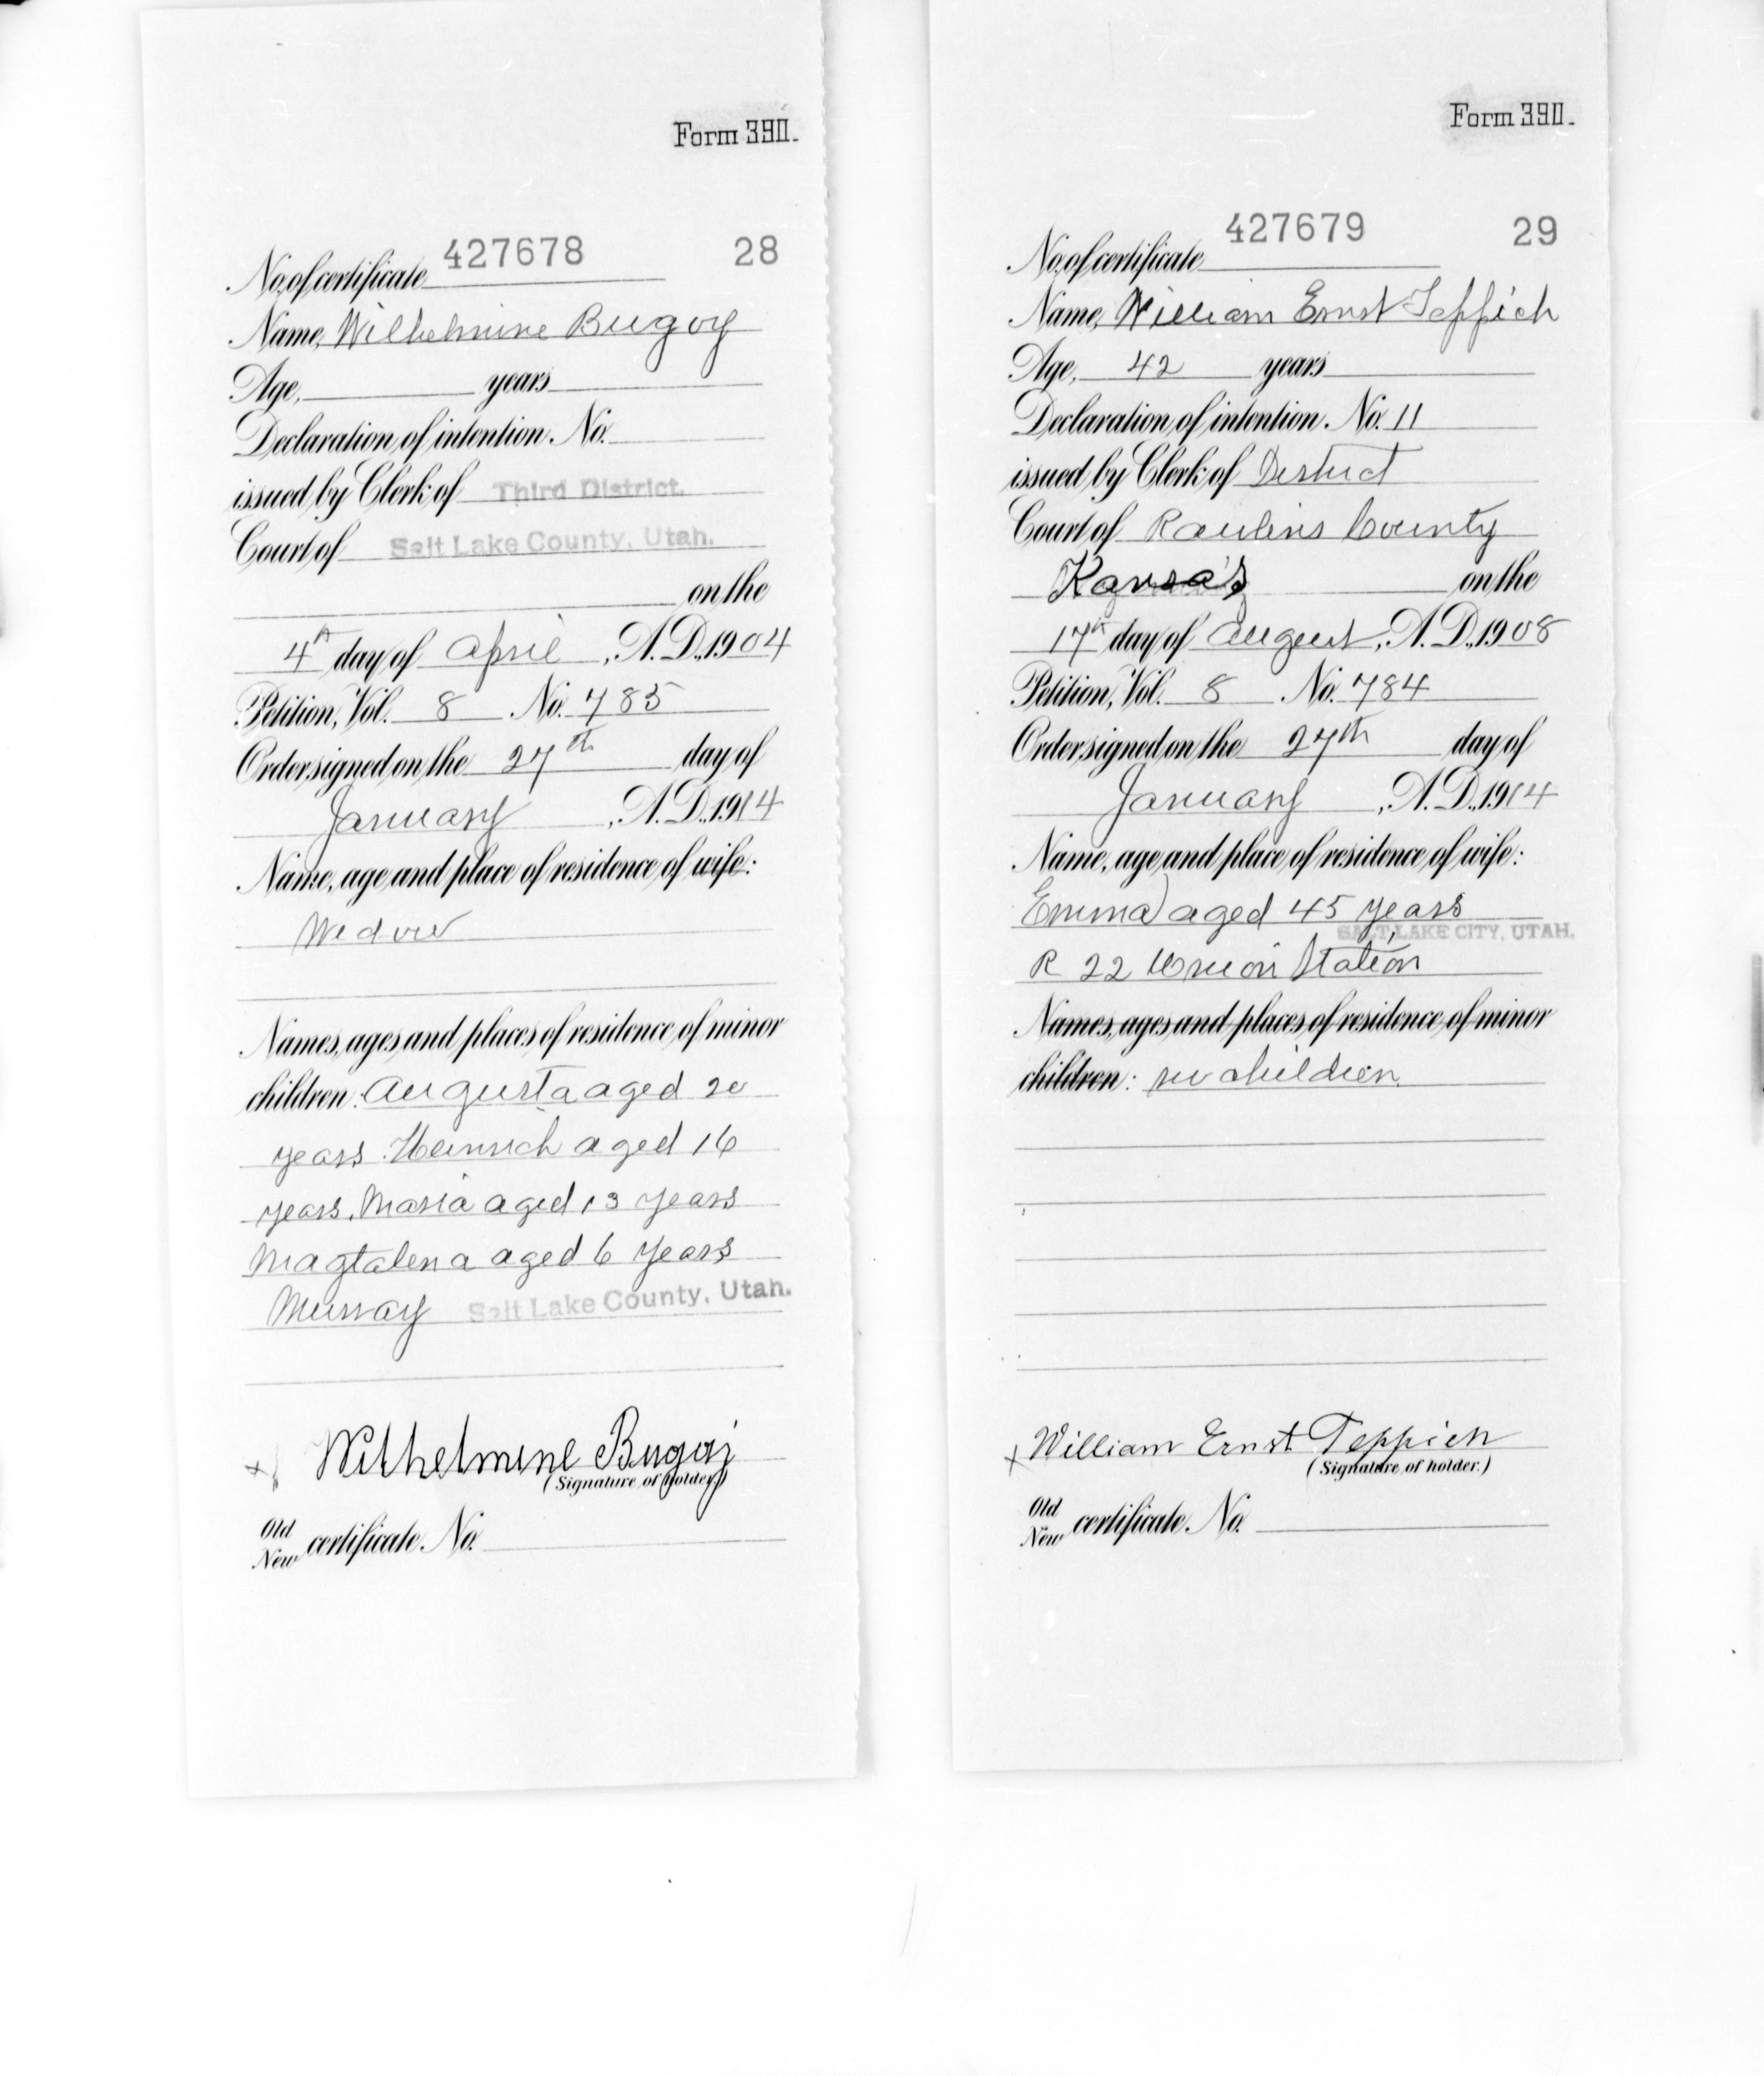 Form 390.
427678 28
No. of certificate
Name, Wilhelmine Bugoy
Age, years
Declaration of intention. No.
issued by Clerk of Third District.
Court of Salt Lake County, Utah.
on the
4th day of April, A. D., 1904
Petition, Vol. 8 No. 785
Order signed on the 27th day of
January, A. D., 1914
Name, age and place of residence of wife:
Widow
Names, ages and places of residence of minor
children: Augusta aged 20
years. Heinrich aged 16
years. Maria aged 13 years
Magtalena aged 6 years
Murray Salt Lake County, Utah.
x Wilhelmine Bugoj
(Signature of holder)
Old
New certificate. No.
Form 390.
427679 29
No. of certificate
Name, William Ernst Teppich
Age, 42 years
Declaration of intention. No. 11
issued by Clerk of District
Court of Rawlins County
Kansas on the
17th day of August, A. D., 1908
Petition, Vol. 8 No. 784
Order signed on the 27th day of
January, A. D., 1914
Name, age and place of residence of wife:
Emma aged 45 years
SALT LAKE CITY, UTAH.
R 22 Union Station
Names, ages and places of residence of minor
children: no children
x William Ernst Teppich
(Signature of holder.)
Old
New certificate. No.